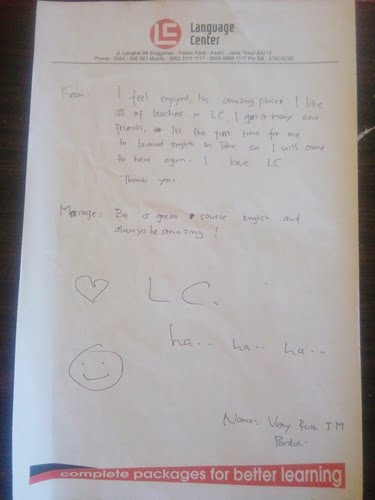 LC
Language
Center
Jl. Langkat 88 Singgahan - Pelem Pare - Kediri - Jawa Timur 64213
Phone : 0354 - 396 881 Mobile :
I feel enjoyed, its amazing place. I like
all of teachers in LC, I got a many new
friends, Its the first time for me
to learned english in Pare so I will come
to here again. I love LC
Thank you
Message : Be a great course english and
always be amazing !
LC.
ha... ha... ha...
Name : Very
complete packages for better learning